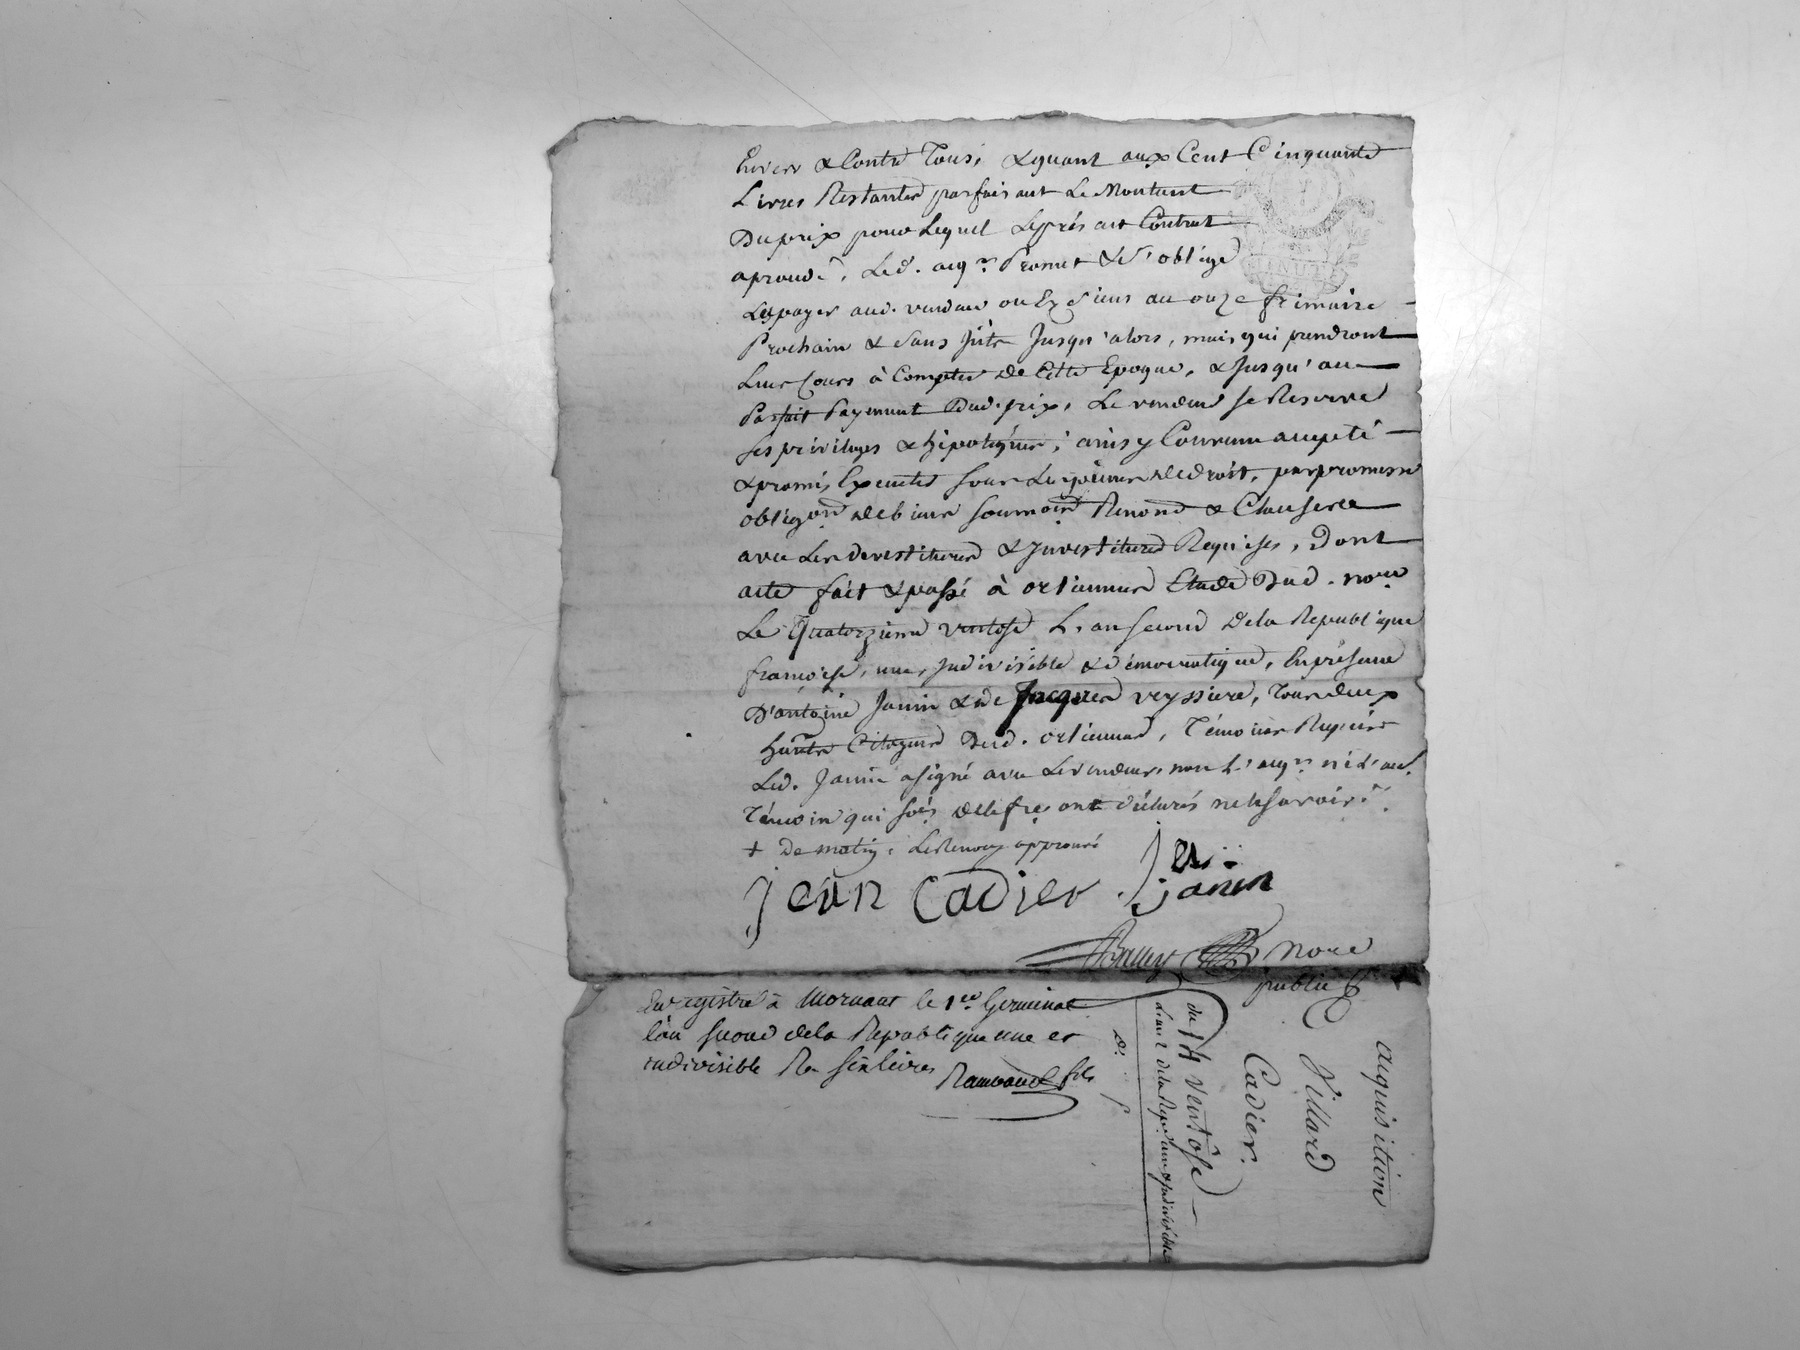 Envers & Contre Tous, & quant aux Cent Cinquante
Livres Restantes parfaisant Le Montant
Du prix pour Lequel Le présent Contrat
a procedé, Led. aqr. Promet & s'oblige
Les payer aud. vendeur ou Ex siens au onze frimaire
Prochain & sans jnts. Jusqu'alors, mais qui prendront
Leur Cours à Compter de Cette Epoque, & Jusqu'au
Parfait Payement Dud. prix, Le vendeur se Reserve
ses privileges & hipoteques; ainsy Convenu accepté
& promis Executer sous Les peines de droit, par promesse
obligon. de biens soumoin Renond & Clauseree
avec Les devestitures & Jnvestitures Requises, Dont
acte fait & passé à orlienas Etude Dud. nore
Le Quatorzieme ventose L'an second de la Republique
françoise, une, Jndivisible & démocratique, En présence
D'antoine Janin & de Jacques veyssiere, Tous deux
hants Citoyens Dud. orlienas, Témoins Requis
Led. Janin a signé avec Le vendeur, non L'aqr. ni L'au.
Témoin qui soés de le fre. ont déclarés ne le savoir.
+ De matin; Le Renvoy approuvé
jean Cadier
janin
nore
public
Enregistré à Mornant le 1er Germinal
l'an second de la Republique une et
indivisible Ru six livres
Rambaud fils
MINUTE
aquisition
Villard
Cadier.
du 14 Ventôse
L'an 2 de la Repe. une & jndivisible